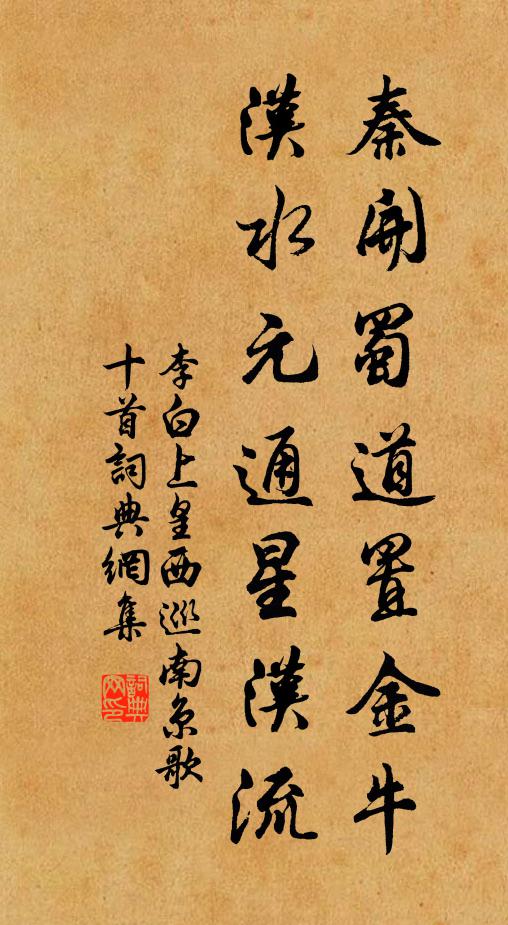 秦開蜀道置金牛
漢水元通星漢流
李白上皇西巡南京歌
十首詞典網集
詞典網印